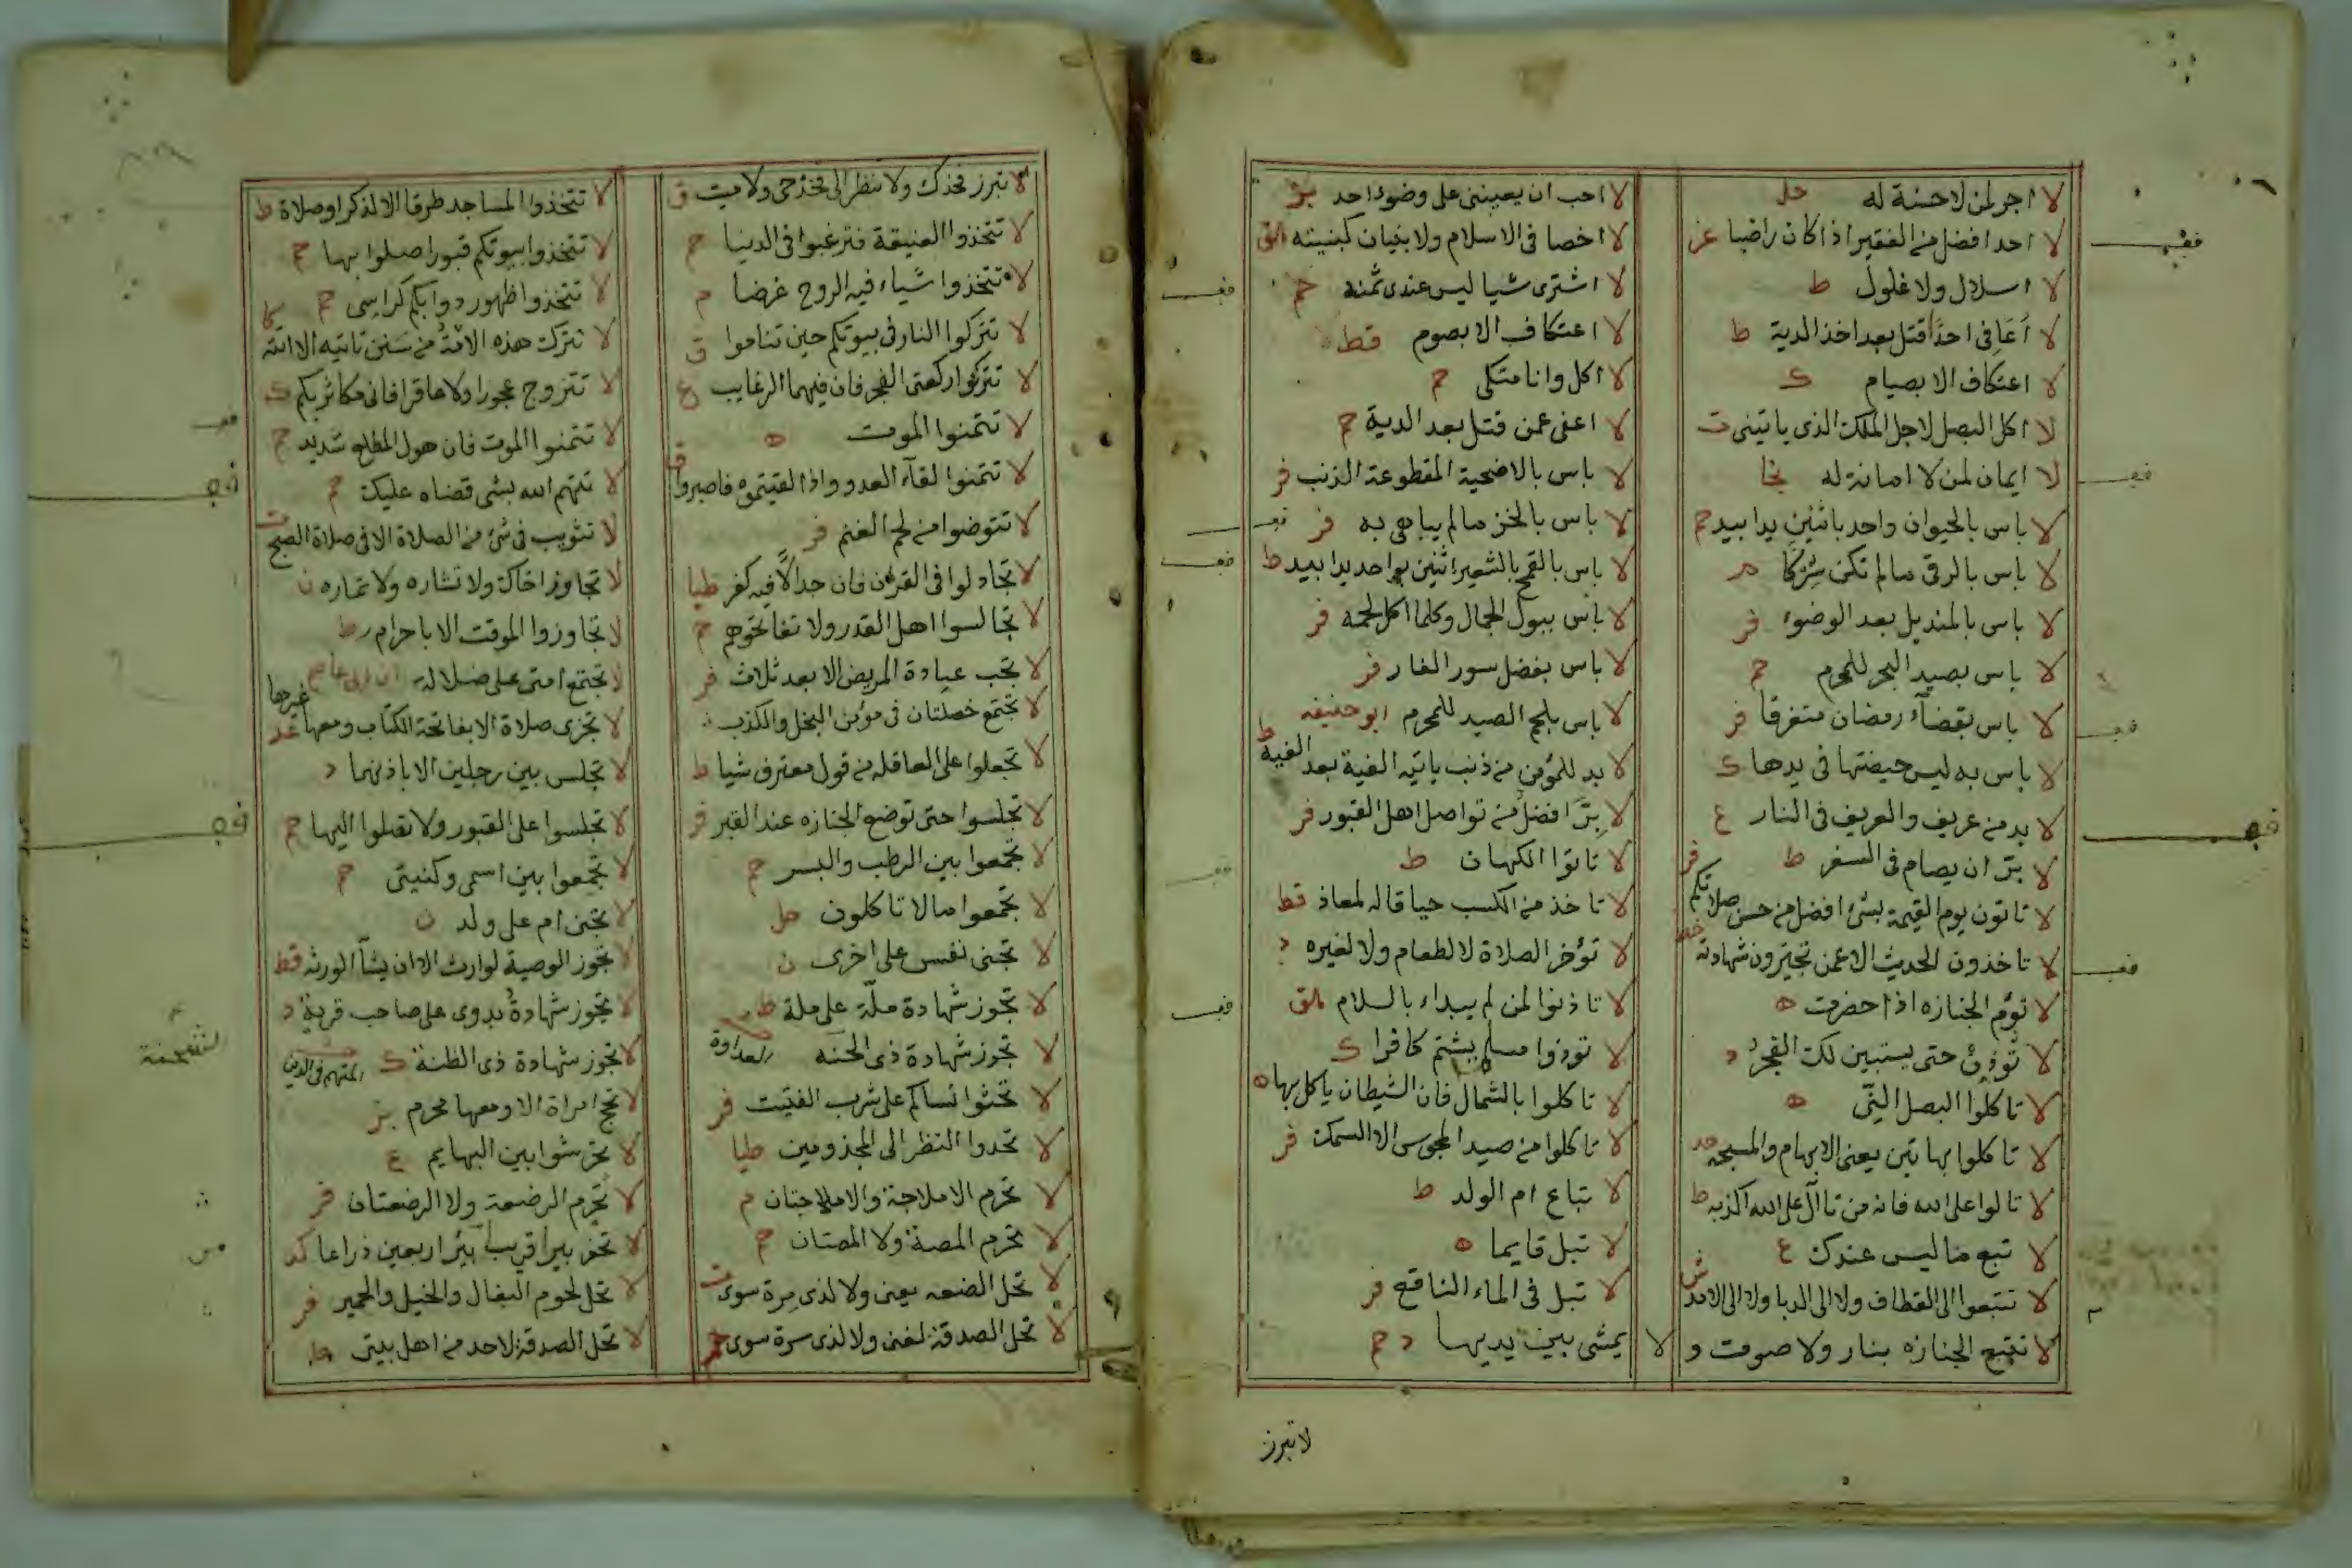 لا اجر لمن لا حسنة له حل
لا احد افضل من الفقير اذا كان راضيا
لا اسلال ولا غلول ط
لا أعافى احدًا قتل بعد اخذ الدية ط
لا اعتكاف الا بصيام ك
لا اكل البصل لاجل الملك الذى ياتينى ت
لا ايمان لمن لا امانة له
لا باس بالحيوان واحد باثنين يدا بيد حم
لا باس بالرقى مالم تكن شركا م
لا باس بالمنديل بعد الوضوء فر
لا باس بصيد البحر للمحرم حم
لا باس بقضآء رمضان متفرقا فر
لا باس به ليس حيضتها فى يدها ك
لا بد من عريف والعريف فى النار ع
لا برّ ان يصام فى السفر ط
لا تاتون يوم القيمة بشئ افضل من حسن صلاتكم فر
لا تاخذون الحديث الا عمن تجيزون شهادته خط
لا تؤم الجنازه اذا حضرت ه
لا تؤذن حتى يستبين لك الفجر د
لا تاكلوا البصل النّى ه
لا تاكلوا بهاتين يعنى الابهام والمسبحه
لا تالوا على الله فانه من تالّ على الله اكذبه ط
لا تبع ما ليس عندك ع
لا تتبعوا الى القطاف ولا الى الدبا ولا الى
لا تتبع الجنازه بنار ولا صوت و
لا احب ان يعيننى على وضوء احد بز
لا اخصا فى الاسلام ولا بنيان كنيسته هق
لا اشترى شيا ليس عندى ثمنه حم
لا اعتكاف الا بصوم قط
لا اكل وانا متكى حم
لا اعفى عمن قتل بعد الدية حم
لا باس بالاضحية المقطوعة الذنب فر
لا باس بالخز مالم يباهى به فر
لا باس بالقمح بالشعير اثنين بواحد يدا بيد ط
لا باس ببول الجمال وكلما اكل لحمه فر
لا باس بفضل سور الفار فر
لا باس بلحم الصيد للمحرم ابو حنيفه
لا بد للمؤمن من ذنب ياتيه الفية بعد الفية ط
لا برّ افضل من تواصل اهل القبور فر
لا تاتوا الكهان ط
لا تاخذ من الكسب حيا قاله لمعاذ قط
لا تؤخر الصلاة لا لطعام ولا لغيره د
لا تاذنوا لمن لم يبداء بالسلام هق
لا توذوا مسلم بشتم كافرا ك
لا تاكلوا بالشمال فان الشيطان ياكل بها ه
لا تاكلوا من صيد المجوس الا السمك فر
لا تباع ام الولد ط
لا تبل قايما ه
لا تبل فى الماء الناقع فر
لا يمشى بين يديها د حم
لا تبرز
لا تبرز فخذك ولا تنظر الى فخذ حى ولا ميت ق
لا تتخذوا الضيعة فترغبوا فى الدنيا حم
لا تتخذوا شياء فيه الروح غرضا م
لا تتركوا النار فى بيوتكم حين تناموا ق
لا تتركوا ركعتى الفجر فان فيهما الرغايب ع
لا تتمنوا الموت ه
لا تتمنوا لقآء العدو واذا لقيتموه فاصبروا ق
لا تتوضوا من لحم الغنم فر
لا تجادلوا فى القرآن فان جدالًا فيه كفر طيا
لا تجالسوا اهل القدر ولا تفاتحوهم حم
لا تجب عيادة المريض الا بعد ثلاث فر
لا تجتمع خصلتان فى مؤمن البخل والكذب
لا تجعلوا على العاقله من قول معترف شيا ط
لا تجلسوا حتى توضع الجنازه عند القبر فر
لا تجمعوا بين الرطب والبسر حم
لا تجمعوا مالا تاكلون حل
لا تجنى نفس على اخرى ن
لا تجوز شهادة ملّة على ملة ط
لا تجوز شهادة ذى الحنه العداوة
لا تحثوا نساكم على شرب الفتيت فر
لا تحدوا النظر الى المجذومين طيا
لا تحرم الاملاجة والاملاجتان م
لا تحرم المصة ولا المصتان حم
لا تحل الضعه يعنى ولا لذى مرة سوى ت
لا تحل الصدقة لغنى ولا لذى مرة سوى حم
لا تتخذوا المساجد طرقا الا لذكر او صلاة ط
لا تتخذوا بيوتكم قبورا صلوا بها حم
لا تتخذوا ظهور دوابكم كراسى حم كا
لا تترك هذه الامة من سنن تاتيه الا اتته
لا تتزوج عجورا ولا عاقرا فانى مكاثر بكم ك
لا تتمنوا الموت فان هول المطلع شديد حم
لا تتهم الله بشى قضاه عليك حم
لا تثويب فى شئ من الصلاة الا فى صلاة الصبح ت
لا تجاوز اخاك ولا تشاره ولا تماره ن
لا تجاوزوا الموقت الا باحرام ط
لا تجتمع امتى على ضلاله ابن ابى عاصم
لا تجزى صلاة الا بفاتحة الكتاب ومعها غيرها عد
لا تجلس بين رجلين الا باذنهما د
لا تجلسوا على القبور ولا تصلوا اليها حم
لا تجمعوا بين اسمى وكنيتى حم
لا تجنى ام على ولد ن
لا تجوز الوصية لوارث الا ان يشآ الورثه قط
لا تجوز شهادة بدوى على صاحب قرية د
لا تجوز شهادة ذى الظنة ك المتهم فى الدين
لا تحج امراة الا ومعها محرم بز
لا تحرشوا بين البهايم ع
لا تحرم الرضعة ولا الرضعتان فر
لا تحفر بيرا قريب بير اربعين ذراعا
لا تحل لحوم البغال والخيل والحمير فر
لا تحل الصدقة لاحد من اهل بيتى ط